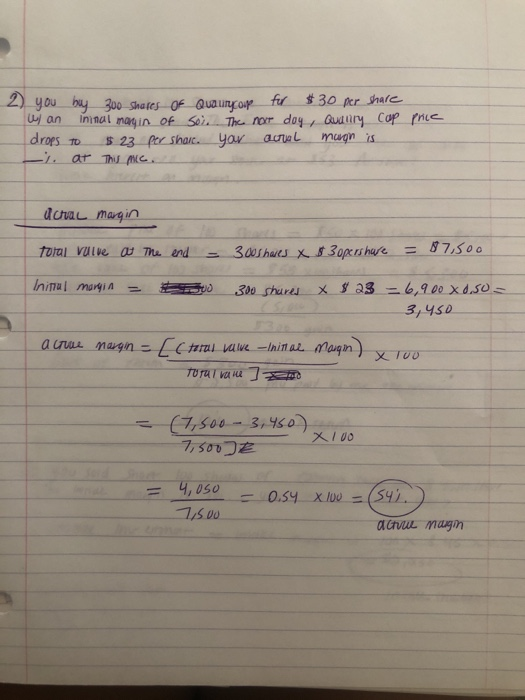 2) you buy 300 shares of Qualitycap for $30 per share
w/ an initial margin of 50%. The next day, Quality Cap price
drops to $23 per share. your actual margin is
_%. at this price.
actual margin
total value at the end = 300shares x $30pershare = $7,500
Initial margin = 300 shares x $23 = 6,900 x 0.50 =
3,450
actual margin = [(total value - initial margin) x 100
total value]
= (7,500 - 3,450) x 100
7,500]
= 4,050 = 0.54 x 100 = 54%.
7,500
actual margin